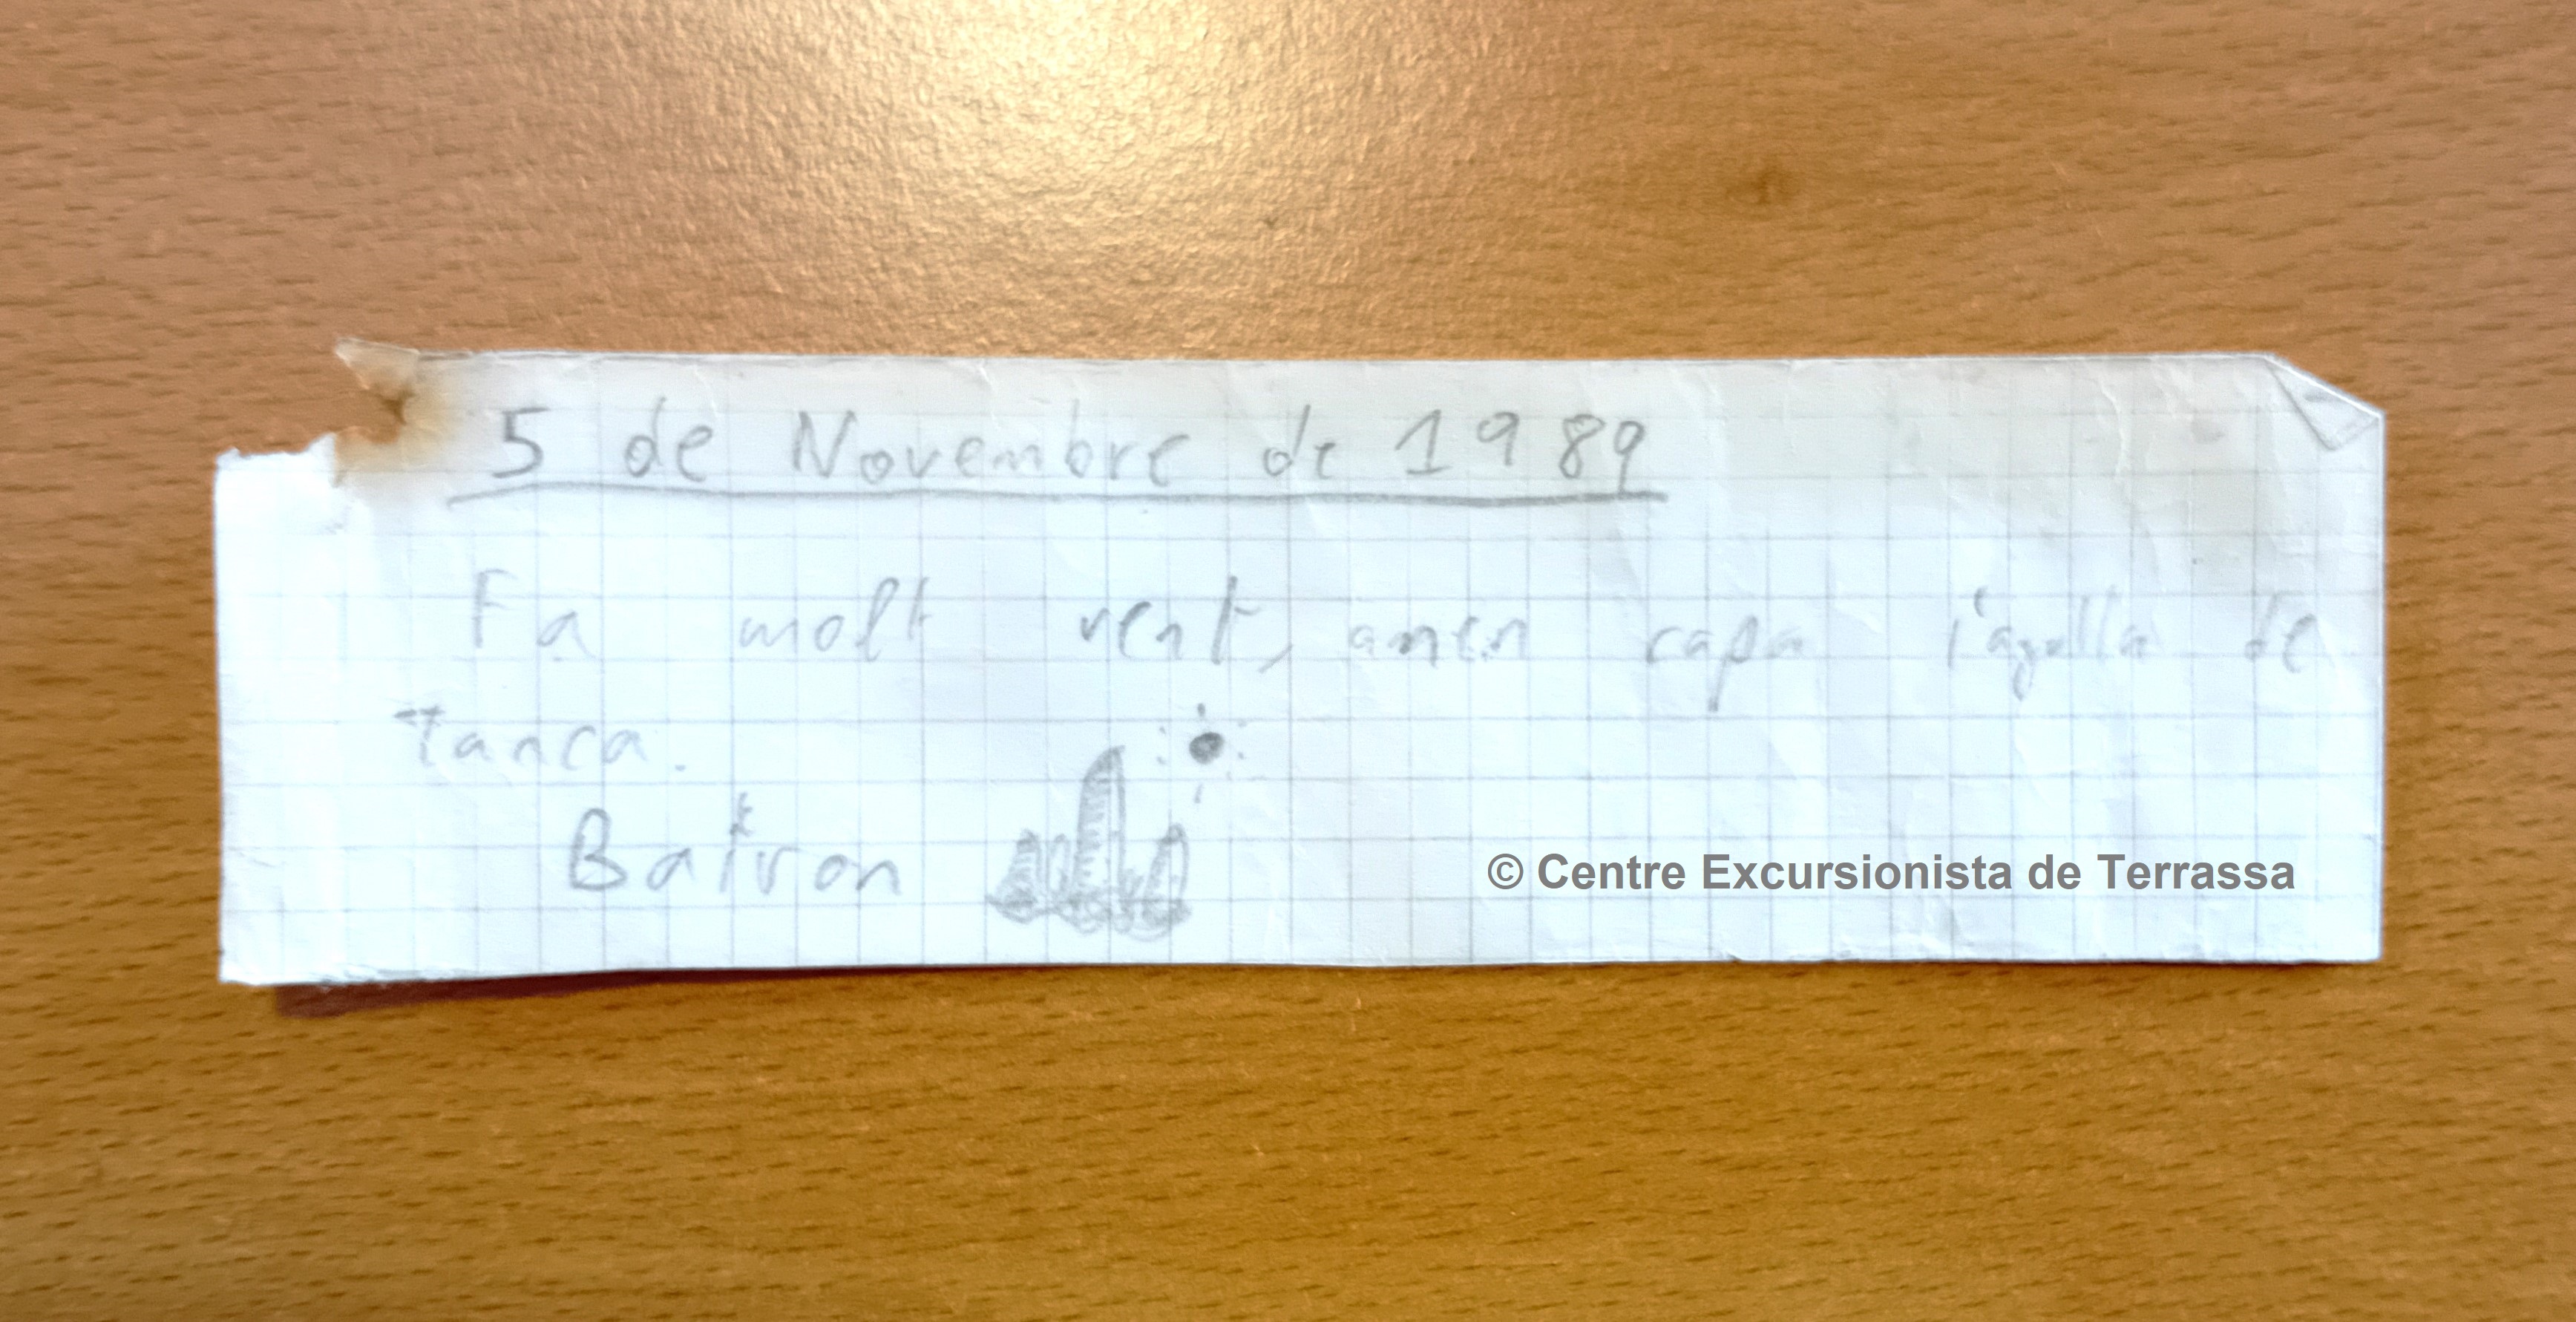 5 de Novembre de 1989
Fa molt vent, anem capa l'agulla de
tanca.
Batron
© Centre Excursionista de Terrassa